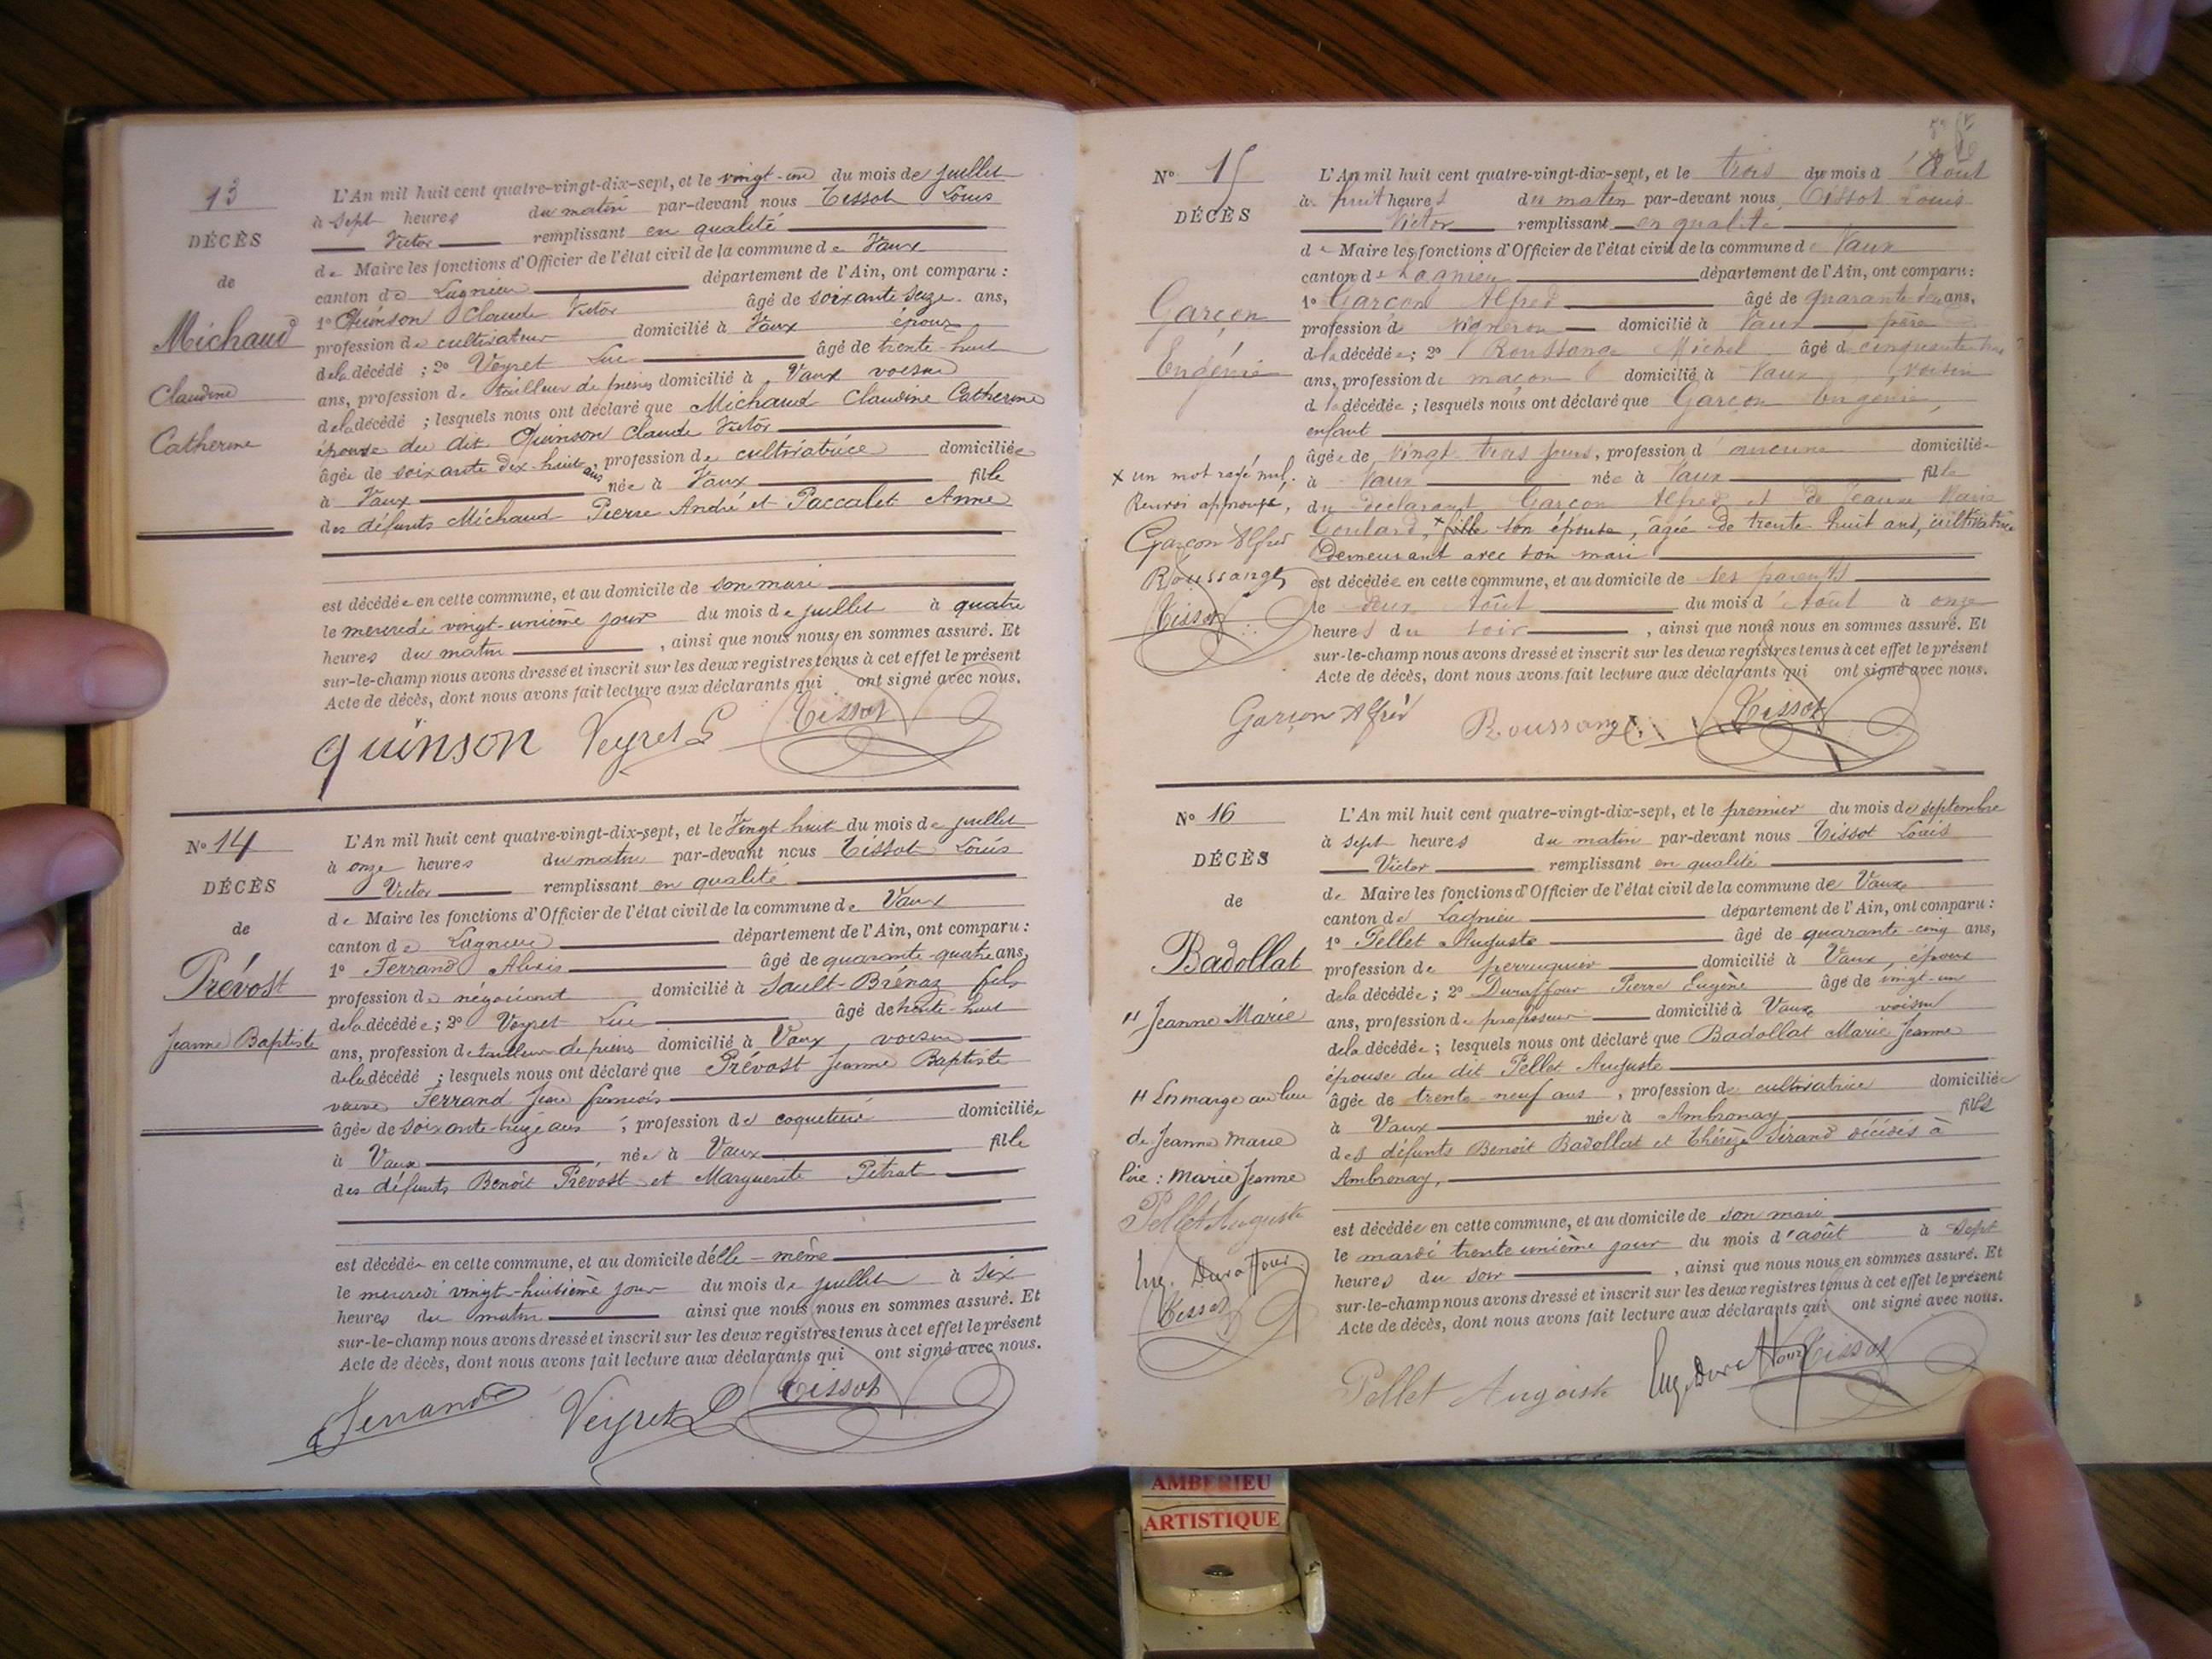 13
DÉCÈS
de
Michaud
Claudine
Catherine
L'An mil huit cent quatre-vingt-dix-sept, et le vingt-un du mois de juillet
à sept heures du matin par-devant nous Tissot Louis
Victor remplissant en qualité
de Maire les fonctions d'Officier de l'état civil de la commune de Vaux
canton de Lagnieu département de l'Ain, ont comparu :
1º Quinson Claude Victor âgé de soixante seize ans,
profession de cultivateur domicilié à Vaux époux
de la décédé ; 2º Veyret Luc âgé de trente-huit
ans, profession de tailleur de pierres domicilié à Vaux voisin
de la décédé ; lesquels nous ont déclaré que Michaud Claudine Catherine
épouse du dit Quinson Claude Victor
âgée de soixante dix-huit ans, profession de cultivatrice domiciliée
à Vaux née à Vaux fille
des défunts Michaud Pierre André et Paccalet Anne
est décédée en cette commune, et au domicile de son mari
le mercredi vingt-unième jour du mois de juillet à quatre
heures du matin , ainsi que nous nous en sommes assuré. Et
sur-le-champ nous avons dressé et inscrit sur les deux registres tenus à cet effet le présent
Acte de décès, dont nous avons fait lecture aux déclarants qui ont signé avec nous.
quinson Veyret L Tissot
Nº 14
DÉCÈS
de
Prévost
Jeanne Baptiste
L'An mil huit cent quatre-vingt-dix-sept, et le Vingt huit du mois de juillet
à onze heures du matin par-devant nous Tissot Louis
Victor remplissant en qualité
de Maire les fonctions d'Officier de l'état civil de la commune de Vaux
canton de Lagnieu département de l'Ain, ont comparu :
1º Ferrand Alexis âgé de quarante-quatre ans,
profession de négociant domicilié à Sault-Brénaz fils
de la décédée ; 2º Veyret Luc âgé de trente-huit
ans, profession de tailleur de pierres domicilié à Vaux, voisin
de la décédé ; lesquels nous ont déclaré que Prévost Jeanne Baptiste
veuve Ferrand Jean François
âgée de soixante-seize ans , profession de coquetière domiciliée
à Vaux née à Vaux fille
des défunts Benoît Prévost et Marguerite Pétrat
est décédée en cette commune, et au domicile d'elle-même
le mercredi vingt-huitième jour du mois de juillet à six
heures du matin ainsi que nous nous en sommes assuré. Et
sur-le-champ nous avons dressé et inscrit sur les deux registres tenus à cet effet le présent
Acte de décès, dont nous avons fait lecture aux déclarants qui ont signé avec nous.
Ferrand Veyret L Tissot
Nº 15
DÉCÈS
Garçon
Eugénie
x un mot rayé nul.
Renvoi approuvé,
Garçon Alfred
Roussange
Tissot
L'An mil huit cent quatre-vingt-dix-sept, et le trois du mois d'Août
à huit heures du matin par-devant nous Tissot Louis
Victor remplissant en qualité
de Maire les fonctions d'Officier de l'état civil de la commune de Vaux
canton de Lagnieu département de l'Ain, ont comparu :
1º Garçon Alfred âgé de quarante deux ans,
profession de vigneron domicilié à Vaux père
de la décédée ; 2º Roussange Michel âgé de cinquante
ans, profession de maçon domicilié à Vaux , voisin
de la décédée ; lesquels nous ont déclaré que Garçon Eugénie,
enfant
âgée de vingt trois jours, profession d'aucune domiciliée
à Vaux née à Vaux fille
du déclarant Garçon Alfred et de Jeanne Marie
Goulard, x fille son épouse, âgée de trente-huit ans, cultivatrice
demeurant avec son mari
est décédée en cette commune, et au domicile de ses parents
le deux Août du mois d'Août à onze
heures du soir , ainsi que nous nous en sommes assuré. Et
sur-le-champ nous avons dressé et inscrit sur les deux registres tenus à cet effet le présent
Acte de décès, dont nous avons fait lecture aux déclarants qui ont signé avec nous.
Garçon Alfred Roussange Tissot
Nº 16
DÉCÈS
de
Badollat
" Jeanne Marie
" En marge au lieu
de Jeanne Marie
lire : Marie Jeanne
Pellet Auguste
Eug. Duraffour
Tissot
L'An mil huit cent quatre-vingt-dix-sept, et le premier du mois de septembre
à sept heures du matin par-devant nous Tissot Louis
Victor remplissant en qualité
de Maire les fonctions d'Officier de l'état civil de la commune de Vaux
canton de Lagnieu département de l'Ain, ont comparu :
1º Pellet Auguste âgé de quarante-cinq ans,
profession de perruquier domicilié à Vaux, époux
de la décédée ; 2º Duraffour Pierre Eugène âgé de vingt-un
ans, profession de professeur domicilié à Vaux, voisin
de la décédée ; lesquels nous ont déclaré que Badollat Marie Jeanne
épouse du dit Pellet Auguste
âgée de trente-neuf ans , profession de cultivatrice domiciliée
à Vaux née à Ambronay fille
des défunts Benoît Badollat et Thérèze Sérand décédés à
Ambronay,
est décédée en cette commune, et au domicile de son mari
le mardi trente unième jour du mois d'août à sept
heures du soir , ainsi que nous nous en sommes assuré. Et
sur-le-champ nous avons dressé et inscrit sur les deux registres tenus à cet effet le présent
Acte de décès, dont nous avons fait lecture aux déclarants qui ont signé avec nous.
Pellet Auguste Eug. Duraffour Tissot
AMBERIEU
ARTISTIQUE